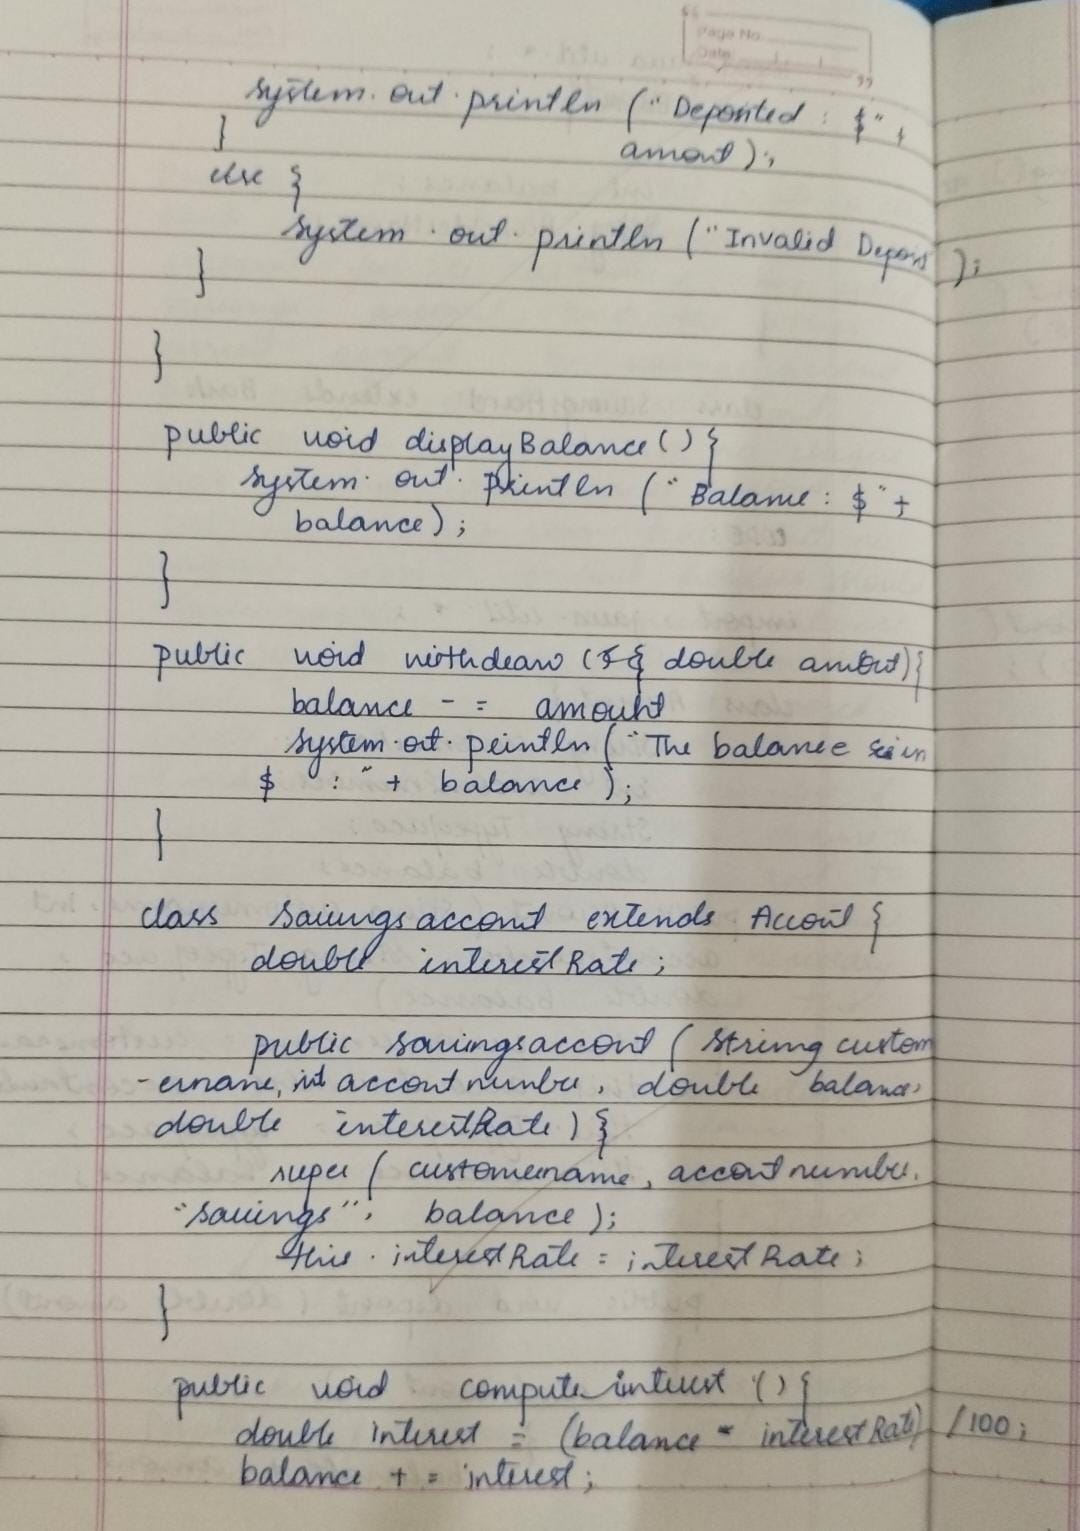 Page No.
Date:
system.out.println ("Deposited : $" +
amount);
}
else {
system.out.println ("Invalid Deposit );
}
}
public void displayBalance () {
system.out.println ("Balance : $" +
balance);
}
public void withdraw ( double amount) {
balance -= amount
system.out.println ("The balance in
$ : " + balance );
}
class Savingsaccount extends Account {
double interestRate;
public savingsaccount (String custom
-ername, int accountnumber, double balance,
double interestRate) {
super ( customername, accountnumber,
"savings", balance );
this.interestRate = interestRate;
}
public void compute_interest () {
double interest = (balance * interestRate) /100;
balance += interest;